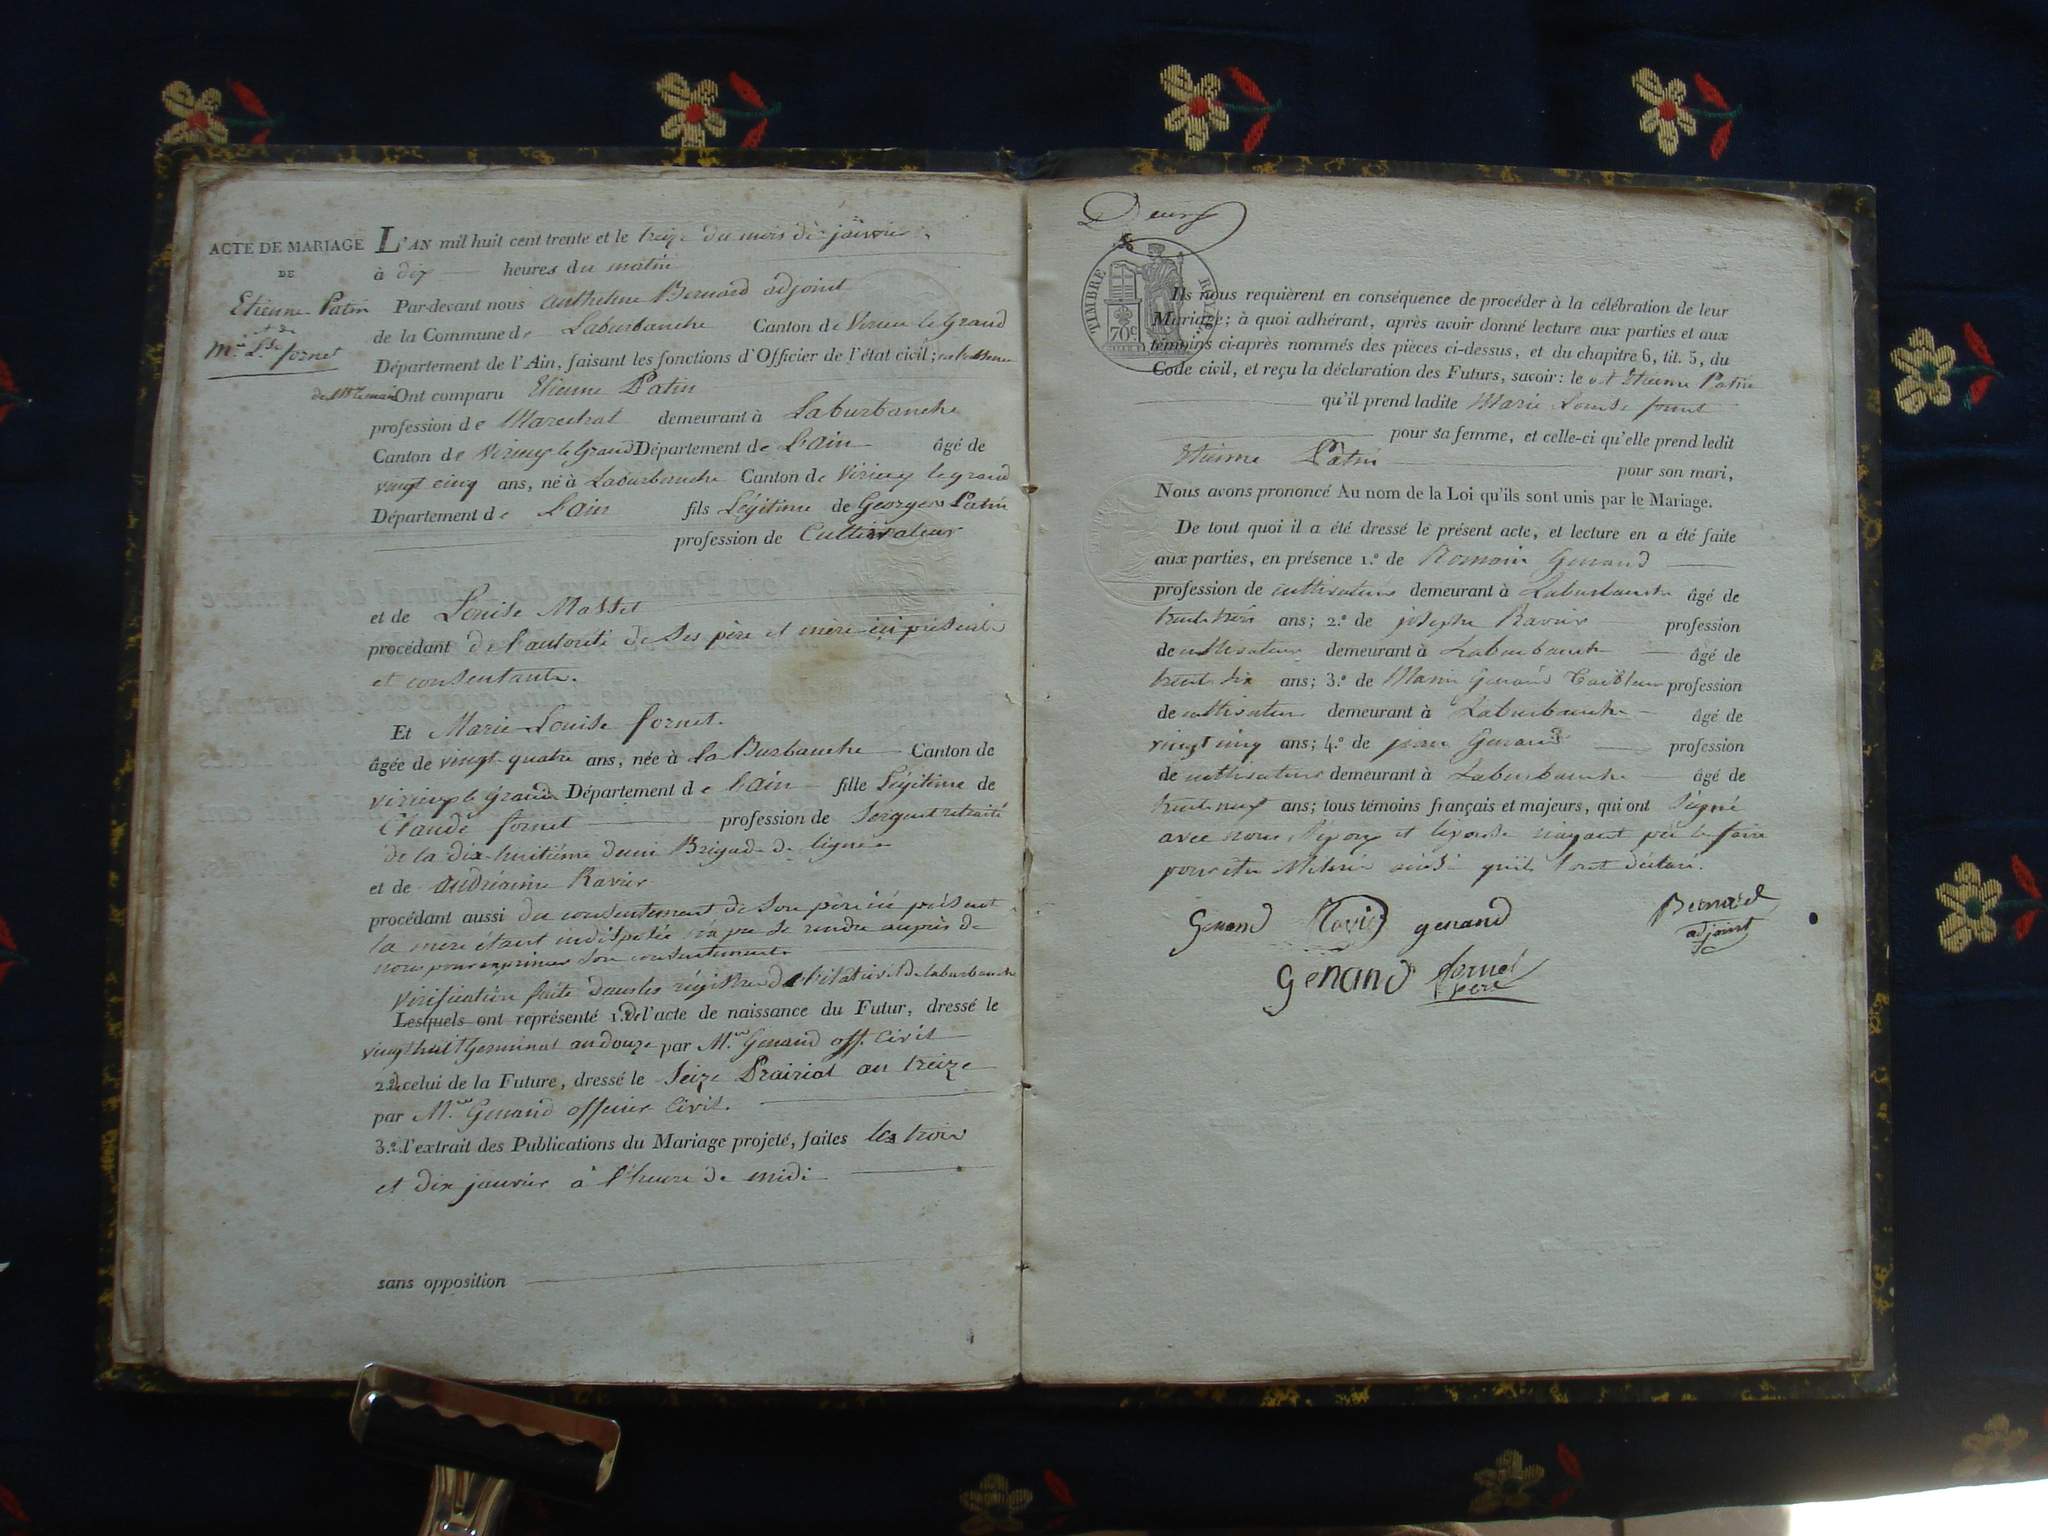 ACTE DE MARIAGE
DE
Etienne Patin
et de
M.ie L.se fornet
L'AN mil huit cent trente et le treize du mois de janvier
à dix heures du matin
Par-devant nous anthelme Bernard adjoint
de la Commune de Laburbanche Canton de Virieu le Grand
Département de l'Ain, faisant les fonctions d'Officier de l'état civil;
Ont comparu Etienne Patin
profession de Marechal demeurant à Laburbanche
Canton de Virieux le Grand Département de L'ain âgé de
vingt cinq ans, né à Laburbanche Canton de Virieux le grand
Département de L'ain fils Légitime de Georges Patin
profession de Cultivateur
et de Louise Masset
procédant de l'autorité de ses père et mère ici présents
et consentants.
Et Marie Louise fornet.
âgée de vingt-quatre ans, née à La Burbanche Canton de
virieux le Grand Département de l'ain fille Légitime de
Claude fornet profession de Sergent retraité
de la dix huitième demi Brigade de ligne
et de andréanne Ravier
procédant aussi du consentement de son père ici présent
la mère étant indisposée n'a pu se rendre auprès de
nous pour exprimer son consentement
vérification faite dans les régistres de l'état civil de laburbanche
Lesquels ont représenté 1.º de l'acte de naissance du Futur, dressé le
vingt huit Germinal an douze par M.r Genand off. Civil
2.º de celui de la Future, dressé le Seize Prairial an treize
par M.r Genand officier Civil.
3.º l'extrait des Publications du Mariage projeté, faites les trois
et dix janvier à l'heure de midi
sans opposition
Deux
TIMBRE ROYAL
70c
Ils nous requièrent en conséquence de procéder à la célébration de leur
Mariage; à quoi adhérant, après avoir donné lecture aux parties et aux
témoins ci-après nommés des pièces ci-dessus, et du chapitre 6, tit. 5, du
Code civil, et reçu la déclaration des Futurs, savoir: le dt Etienne Patin
qu'il prend ladite Marie Louise fornet
pour sa femme, et celle-ci qu'elle prend ledit
Etienne Patin pour son mari,
Nous avons prononcé Au nom de la Loi qu'ils sont unis par le Mariage.
De tout quoi il a été dressé le présent acte, et lecture en a été faite
aux parties, en présence 1.º de Romain Genand
profession de cultivateur demeurant à Laburbanche âgé de
trente trois ans; 2.º de joseph Ravier profession
de cultivateur demeurant à Laburbanche âgé de
trente six ans; 3.º de Marin Genand profession
de cultivateur demeurant à Laburbanche âgé de
vingt cinq ans; 4.º de jean Genand profession
de cultivateur demeurant à Laburbanche âgé de
trente neuf ans; tous témoins français et majeurs, qui ont signé
avec nous, l'époux et l'épouse n'ayant pu le faire
pour être illitéré ainsi qu'ils l'ont déclaré.
Genand Ravier genand Bernard
adjoint
Genand fornet
père